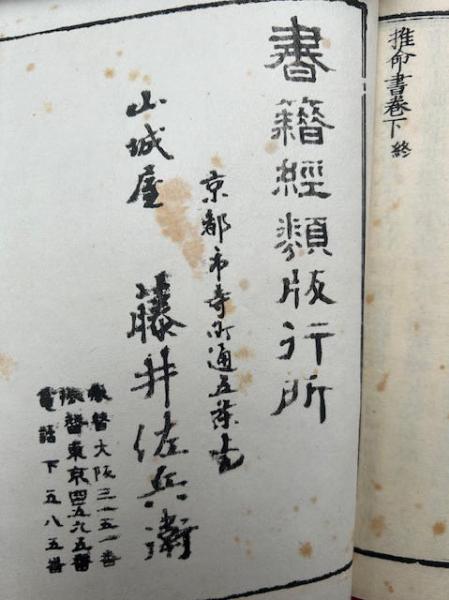 推命書卷下終
書籍經類版行所
京都市寺町通五条上
山城屋 藤井佐兵衛
振替大阪三一五一番
振替東京四五九五番
電話下五八五番